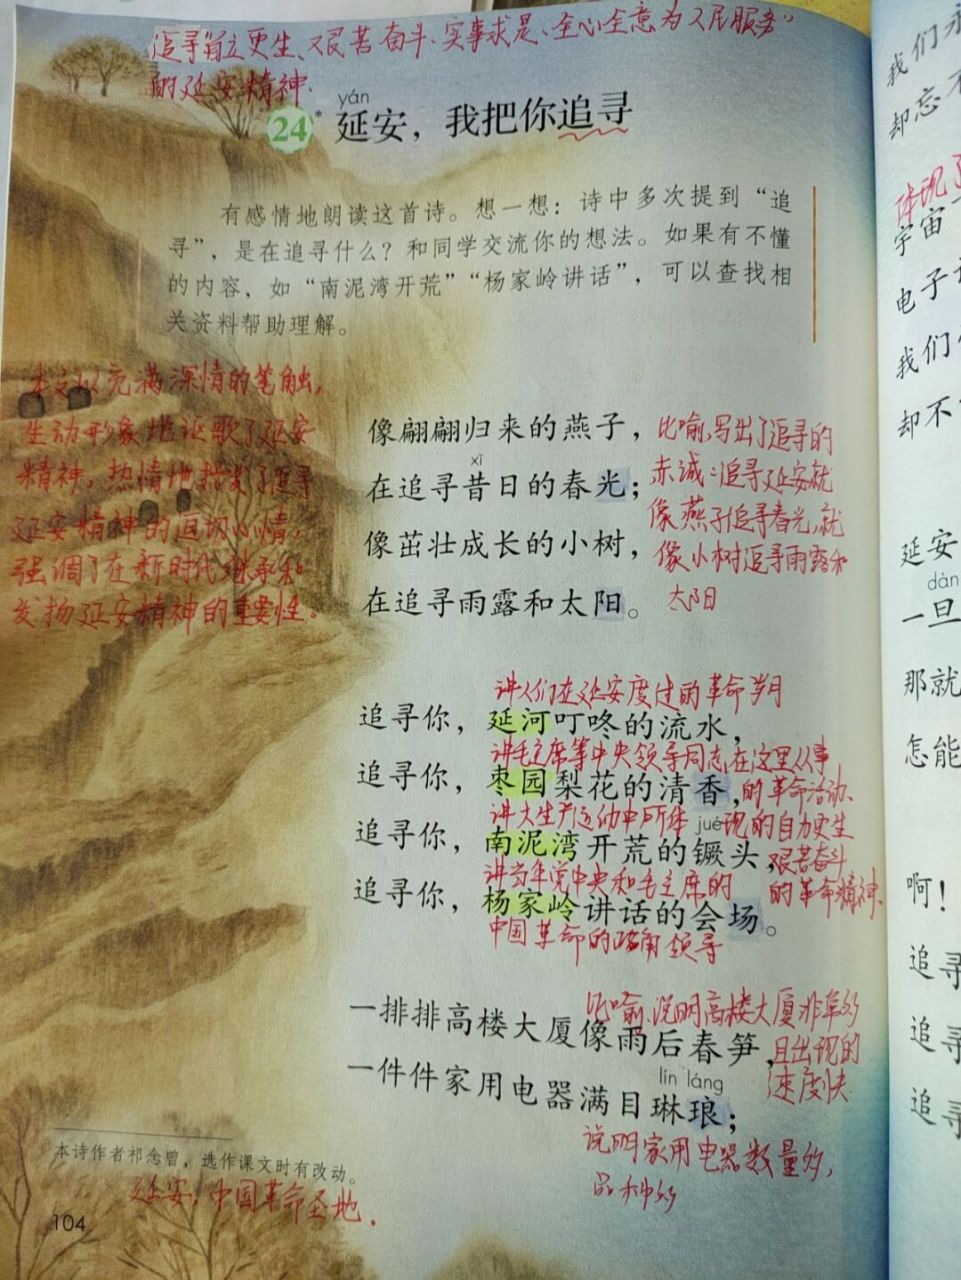 追寻"自立更生、艰苦奋斗、实事求是、全心全意为人民服务"
的延安精神.
yán
24* 延安，我把你追寻
有感情地朗读这首诗。想一想：诗中多次提到“追
寻”，是在追寻什么？和同学交流你的想法。如果有不懂
的内容，如“南泥湾开荒”“杨家岭讲话”，可以查找相
关资料帮助理解。
本文以充满深情的笔触,
生动形象地讴歌了延安
精神,热情地抒发了追寻
延安精神的迫切心情,
强调了在新时代继承和
发扬延安精神的重要性。
像翩翩归来的燕子，
xī
在追寻昔日的春光；
像茁壮成长的小树，
在追寻雨露和太阳。
比喻,写出了追寻的
赤诚:追寻延安就
像燕子追寻春光,就
像小树追寻雨露和
太阳
讲人们在延安度过的革命岁月
追寻你，延河叮咚的流水，
讲毛主席等中央领导同志在这里从事
追寻你，枣园梨花的清香，
的革命活动、
讲大生产运动中所体现的自力更生
jué
追寻你，南泥湾开荒的镢头，
艰苦奋斗
讲当年党中央和毛主席的
的革命精神、
追寻你，杨家岭讲话的会场。
中国革命的正确领导
比喻,说明高楼大厦非常多
一排排高楼大厦像雨后春笋，
且出现的
速度快
lín láng
一件件家用电器满目琳琅；
说明家用电器数量多,
品种多
本诗作者祁念曾，选作课文时有改动。
延安:中国革命圣地.
104
我们
却忘
体现
宇宙
电子
我们
却不
延安
dàn
一旦
那就
怎能
啊！
追寻
追寻
追寻